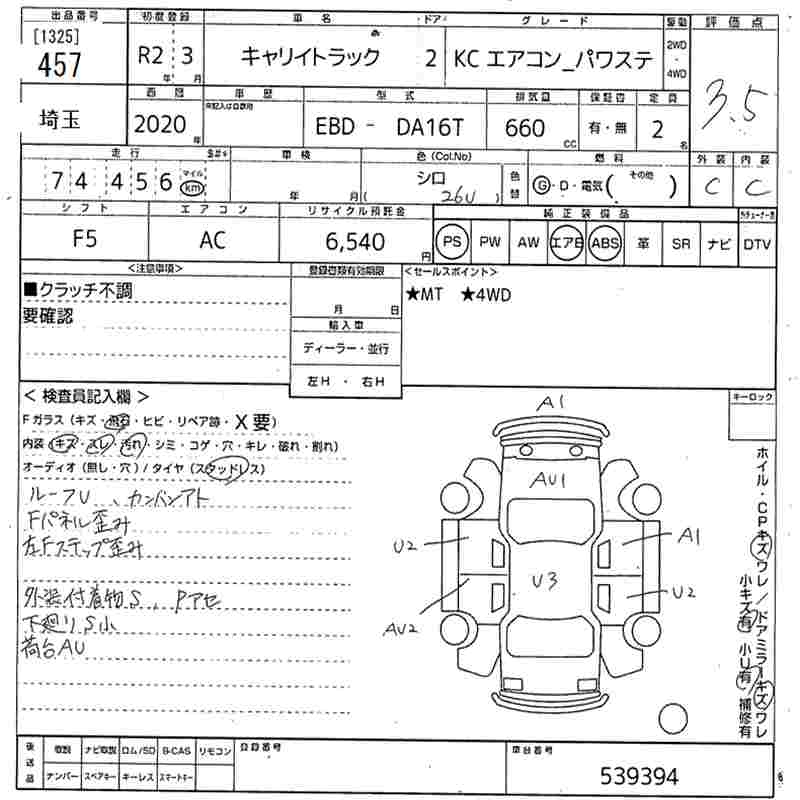 出品番号 初度登録 車名 ・ドア・ グレード 駆動 評価点
[1325]
457 R2年 3月 キャリイトラック 2 KC エアコン_パワステ 2WD・4WD 3.5
西暦 車歴 型式 排気量 保証書 定員
※記入は自家用
埼玉 2020年 EBD - DA16T 660cc 有・無 2名
走行 車検 色(Col.No) 燃料 外装 内装
74,456 マイル km 年 月 シロ ( 26U ) 色替 G・D・電気( その他 ) C C
シフト エアコン リサイクル預託金 純正装備品
F5 AC 6,540円 PS PW AW エアB ABS 革 SR ナビ DTV
<注意事項> 登録書類有効期限 <セールスポイント>
■クラッチ不調 ★MT ★4WD
要確認 月 日
輸入車
ディーラー・並行
左H・右H
< 検査員記入欄 > キーロック
Fガラス(キズ・飛石・ヒビ・リペア跡・X要)
内装(キズ・スレ・汚れ・シミ・コゲ・穴・キレ・破れ・割れ)
オーディオ(無し・穴)/タイヤ(スタッドレス)
ルーフU、カンバンアト
Fパネル歪み
左Fステップ歪み
外装付着物S、Pアセ
下廻りS小
荷台AU
A1
AU1
U2 A1
U3
AU2 U2
ホイル・CPキズワレ/ドアミラーキズワレ
小キズ有 小U有 補修有
後送品 取説 ナビ取説 ロム/SD B-CAS リモコン 登録番号 車台番号
ナンバー スペアキー キーレス スマートキー
539394